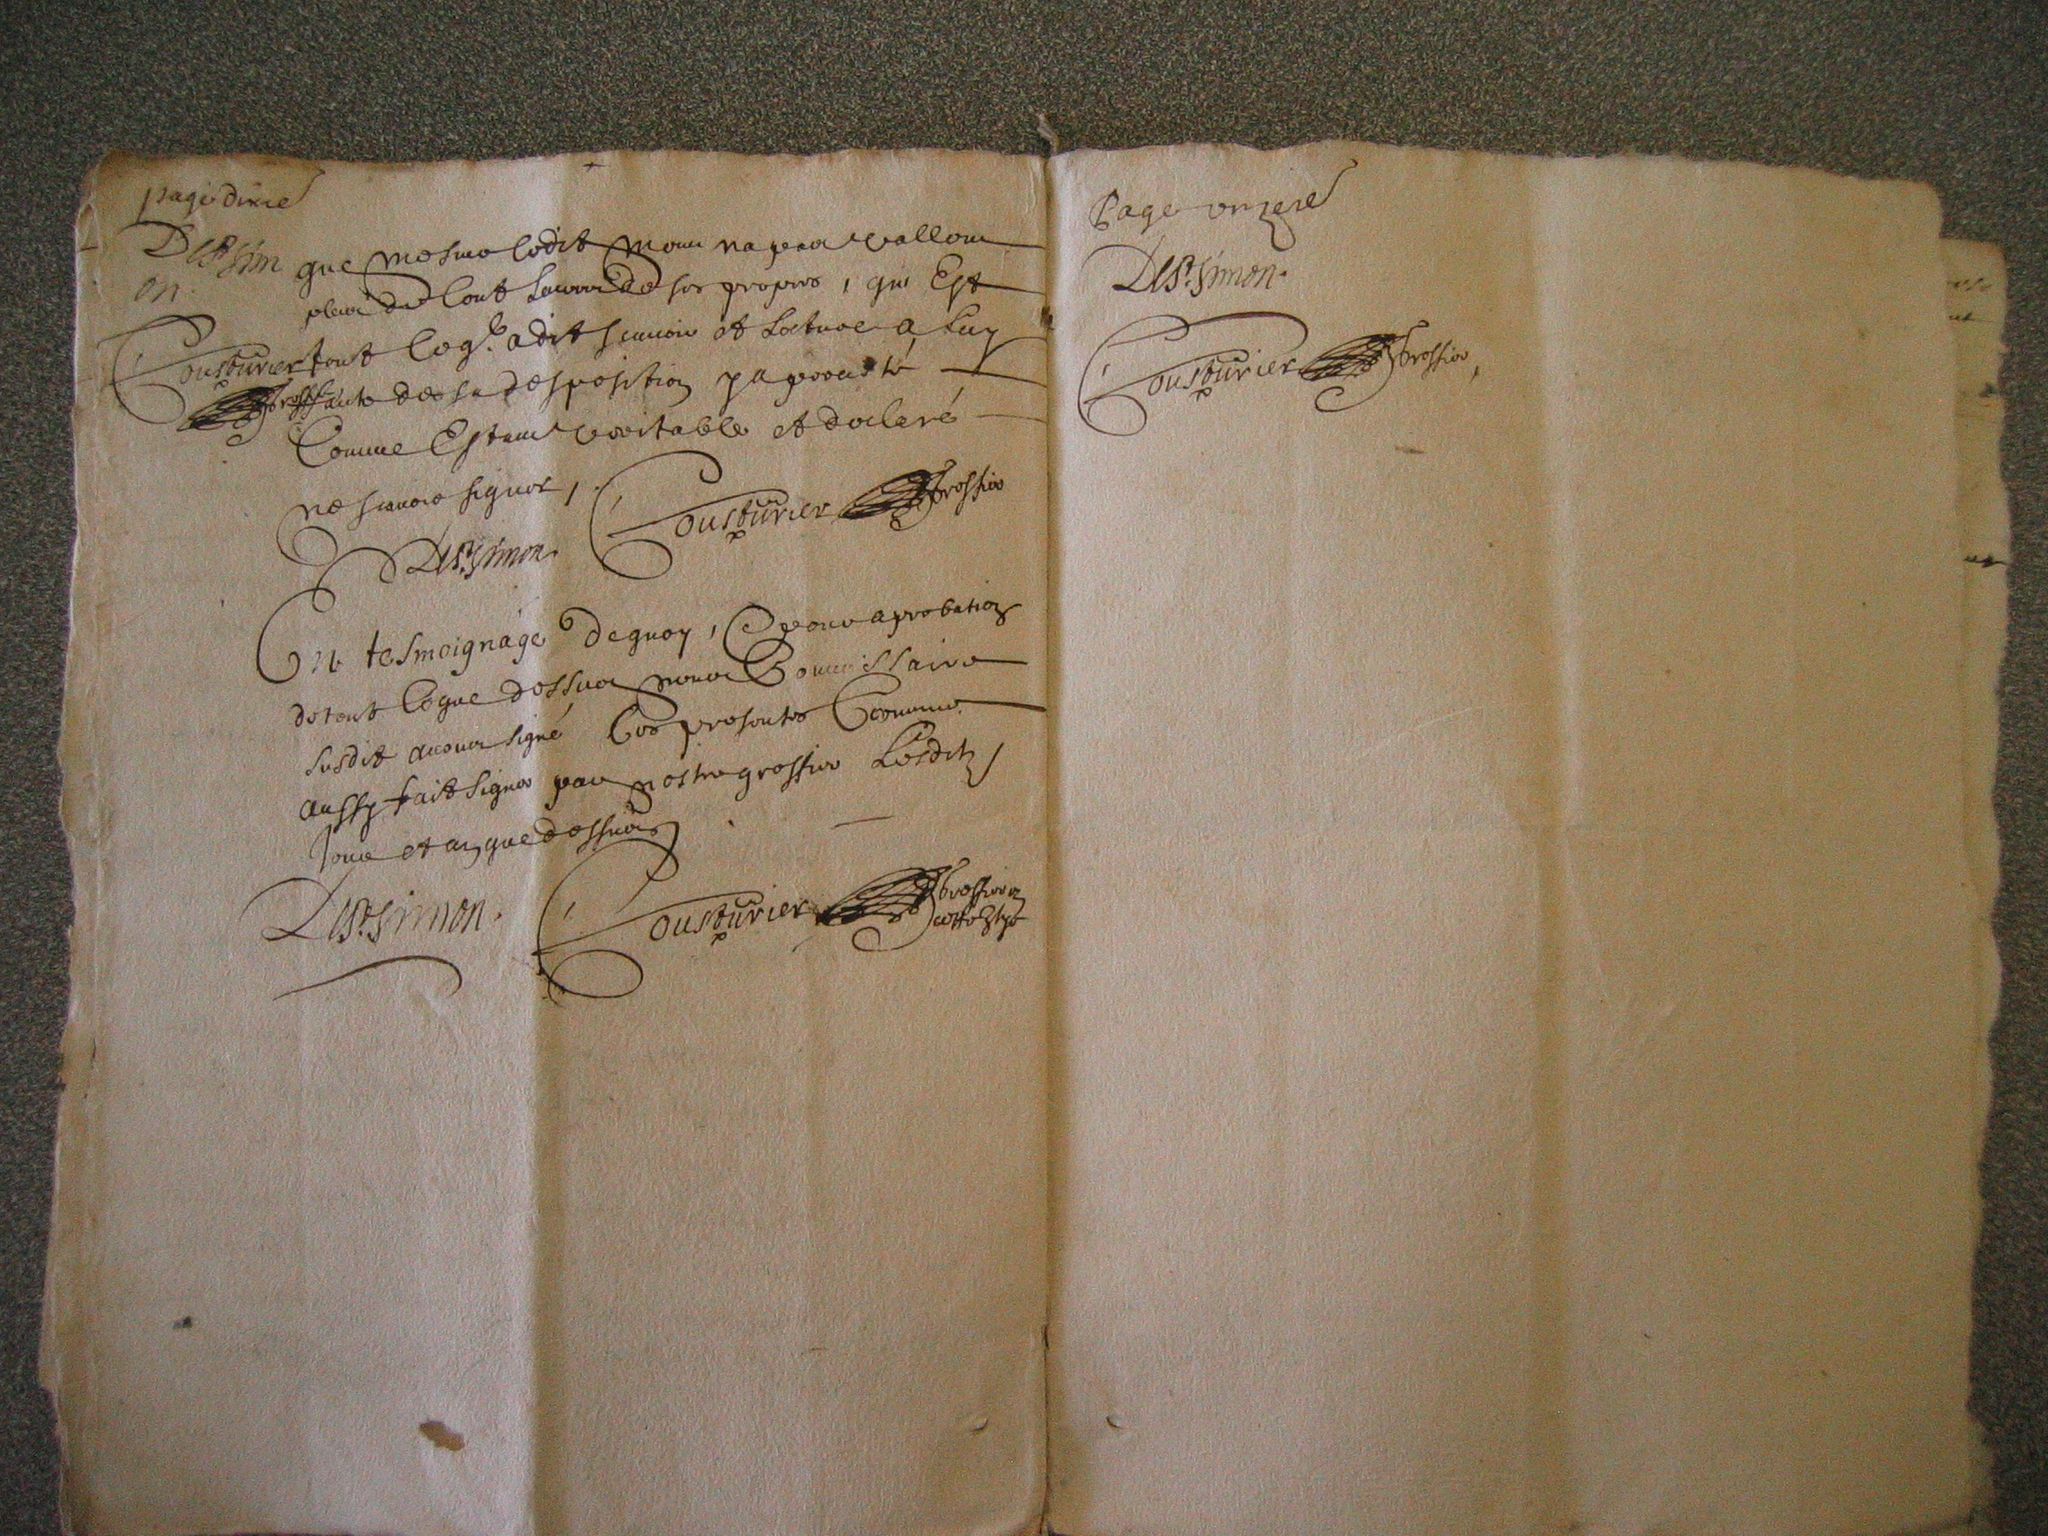 page dixie
DeSt. Simon
que mesme ledit mour na pas vallom
plus de cent livres de ses propres, qui Est
Cousturier tout ce q. a dit scavoir et lecture a luy
greffier faite de sa desposition y a percisté
Comme Estant veritable et declaré
ne scavoir signer,
Cousturier greffier
DeSt. Simon.
En tesmoignage de quoy, Et pour aprobation
de tout ce que dessus nous Commissaire
susdit avons signé Ces presentes Et comme
aussy fait signer par nostre greffier Lesditz
Jour et an que dessus
DeSt. Simon.
Cousturier greffier
Page unziere
DeSt. Simon.
Cousturier greffier,